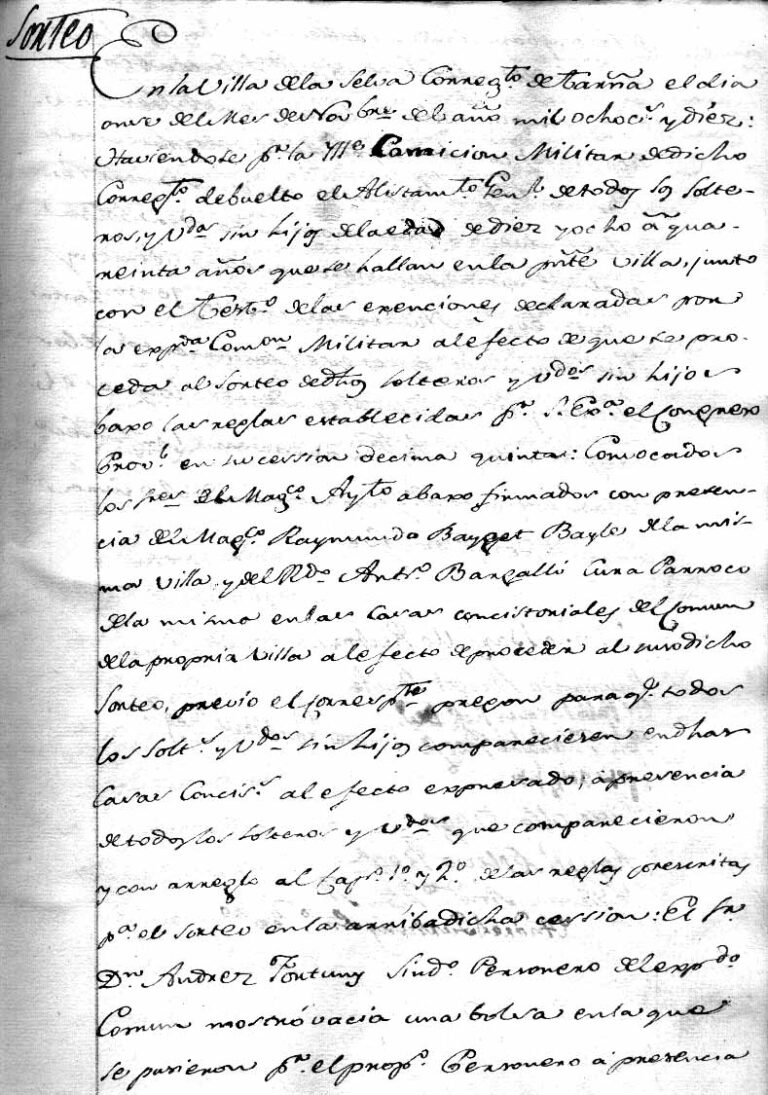 Sorteo
En la Villa de la Selva Corregto. de Tarrña. el dia
onse del Mes de Novbre. del año mil ochocs. y diéz:
Haviendose pr. la Me. Comicion Militar de dicho
Corregto. debuelto el Alistamto. Genl. de todos los Solte-
ros, y Vdos. sin hijos de la edad de diez y ocho à qua-
reinta años que se hallan en la prñte. villa, junto
con el Testo. de las exenciones declaradas por
la expda. Comon. Militar al efecto de que se pro-
ceda al Sorteo de dhos. solteros y Vdos. sin hijos
baxo las reglas establecidas pr. S. Exa. el Congreso
Provl. en su cession decima quinta: Convocados
los Sres. del Magco. Aytto. abaxo firmados con presen-
cia del Magco. Raymundo Bayget Bayle de la mis-
ma Villa, y del Rdo. Anto. Bargalló Cura Parroco
de la misma en las Casas concistoriales del Comun
de la propria Villa al efecto de proceder al susodicho
Sorteo, previo el correspte. pregon para qe. todos
los Solts. y Vdos. sin hijos comparecieren en dhas
Casas Concists. al efecto expresado; à presencia
de todos los solteros y Vdos. que comparecieron
y con arreglo al Capo. 1o. y 2o. de las reglas prescritas
pa. el sorteo en la arriba dicha cession: El Sr.
Dn. Andrez Fortuny Sindo. Personero del expdo.
Comun mostró vacia una bolsa en la que
se pusieron pr. el propo. Personero à presencia